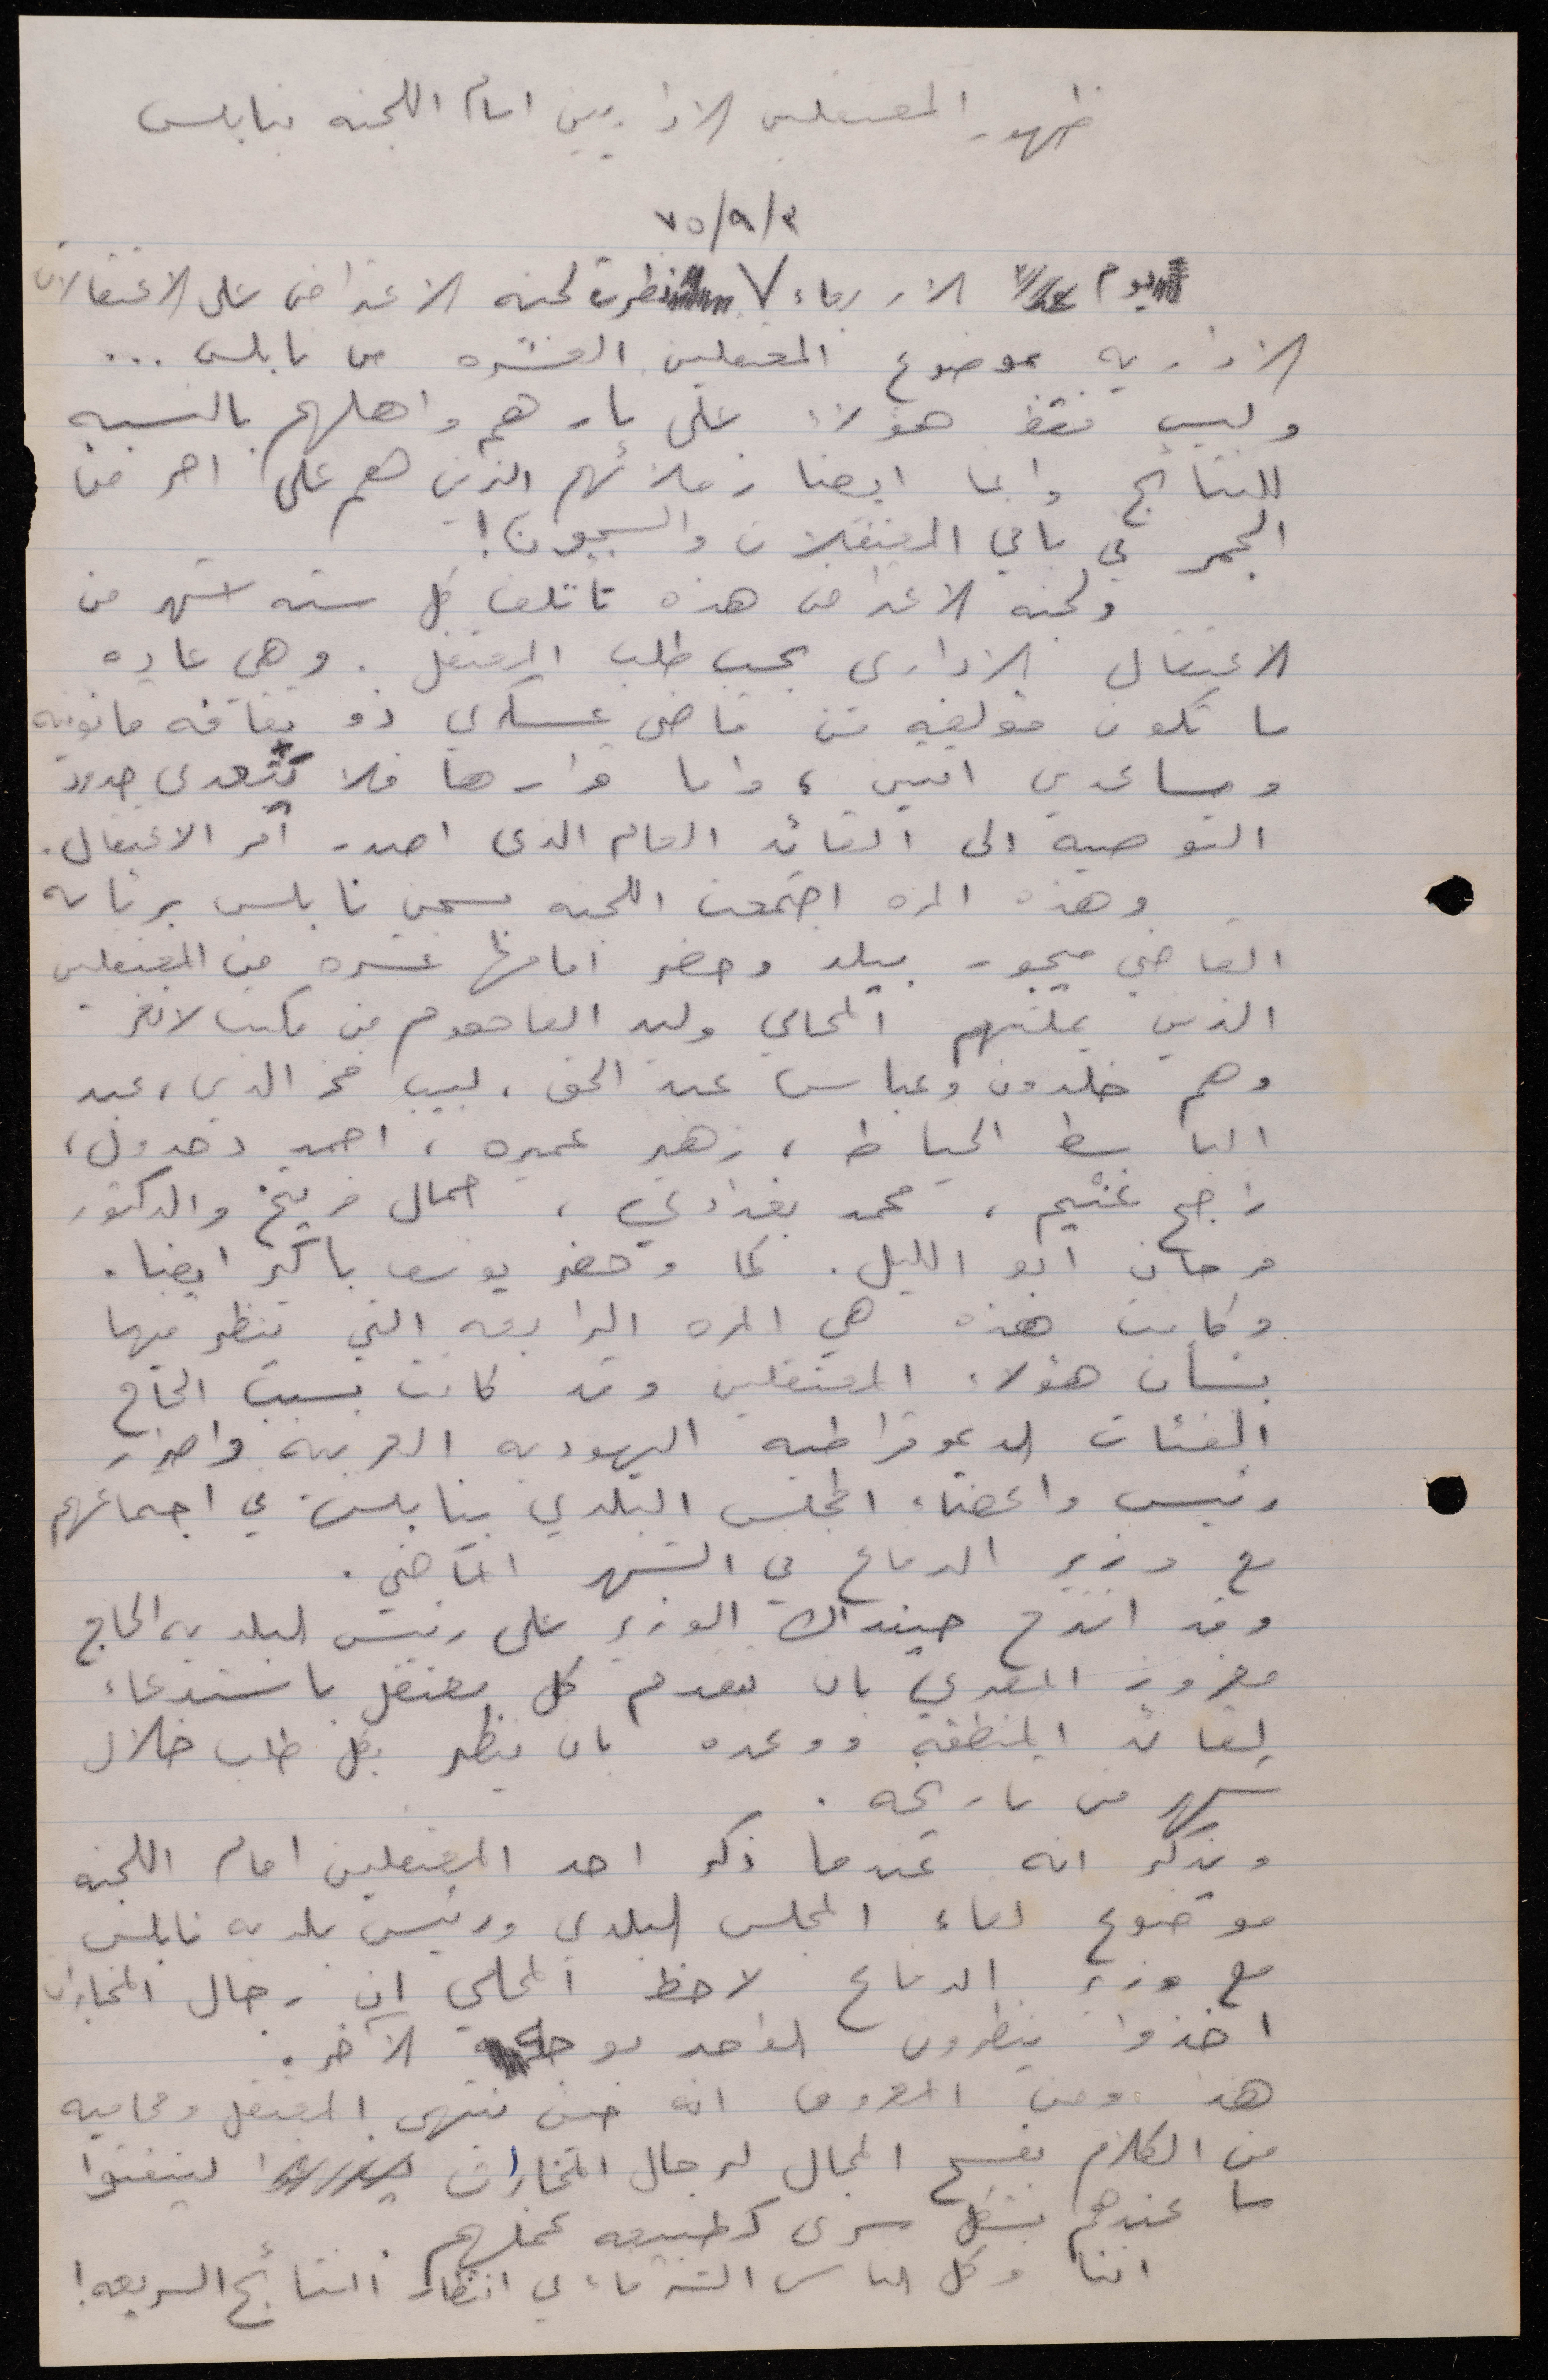 ظهور المعتقلين الاداريين امام اللجنه بنابلس
٧٥/٩/٣
يوم الاربعاء نظرت لجنه الاعتراض على الاعتقالات
الاداريه بموضوع المعتقلين العشره من نابلس ...
وليس فقط هؤلاء على نارهم واهلهم بالنسبه
للنتائج وانما ايضا زملائهم الذين هم على احر من
الجمر في باقي المعتقلات والسجون!
ولجنه الاعتراض هذه تأتلف كل سته اشهر من
الاعتقال الاداري بحسب طلب المعتقل . وهي عاده
ما تكون مؤلفه من قاضي عسكري ذو ثقافه قانونيه
ومساعدي اثنين ، واما قرارها فلا يتعدى حدود
التوصيه الى القائد العام الذي اصدر أمر الاعتقال .
وهذه المره اجتمعت اللجنه بسجن نابلس برئاسه
القاضي ميجور بيلد وحضر امامها عشره من المعتقلين
الذين يمثلهم المحامي وليد الفاهوم من مكتب لانغر
وهم خلدون وعباس عبد الحق ، لبيب فخر الدين ، عبد
الباسط الخياط ، زهير عميره ، احمد دحدول ،
راجح غنيم ، محمد بغدادي ، جمال فريتخ والدكتور
فرحان ابو الليل . كما وحضر يوسف باكير ايضا .
وكانت هذه هي المره الرابعه التي تنظر فيها
بشأن هؤلاء المعتقلين وقد كانت بسبب الحاح
الفئات الديموقراطيه اليهوديه العربيه واصرار
رئيس واعضاء المجلس البلدي بنابلس في اجتماعهم
مع وزير الدفاع في الشهر الماضي .
وقد اقترح حينذاك الوزير على رئيس البلديه الحاج
معزوز المصري بان يتقدم كل معتقل باستدعاء
لقائد المنطقه ووعده بان ينظر بكل طلب خلال
شهر من تاريخه .
ويذكر انه عندما ذكر احد المعتقلين امام اللجنه
موضوع لقاء المجلس البلدي ورئيس بلديه نابلس
مع وزير الدفاع لاحظ المحامي ان رجال المخابرات
اخذوا ينظرون الواحد بوجه الآخر .
هذا ومن المعروف انه حين ينتهي المعتقل ومحاميه
من الكلام يفسح المجال لرجال المخابرات لينفثوا
ما عندهم بشكل سري كطبيعه عملهم .
اننا وكل الناس الشرفاء في انتظار النتائج السريعه !